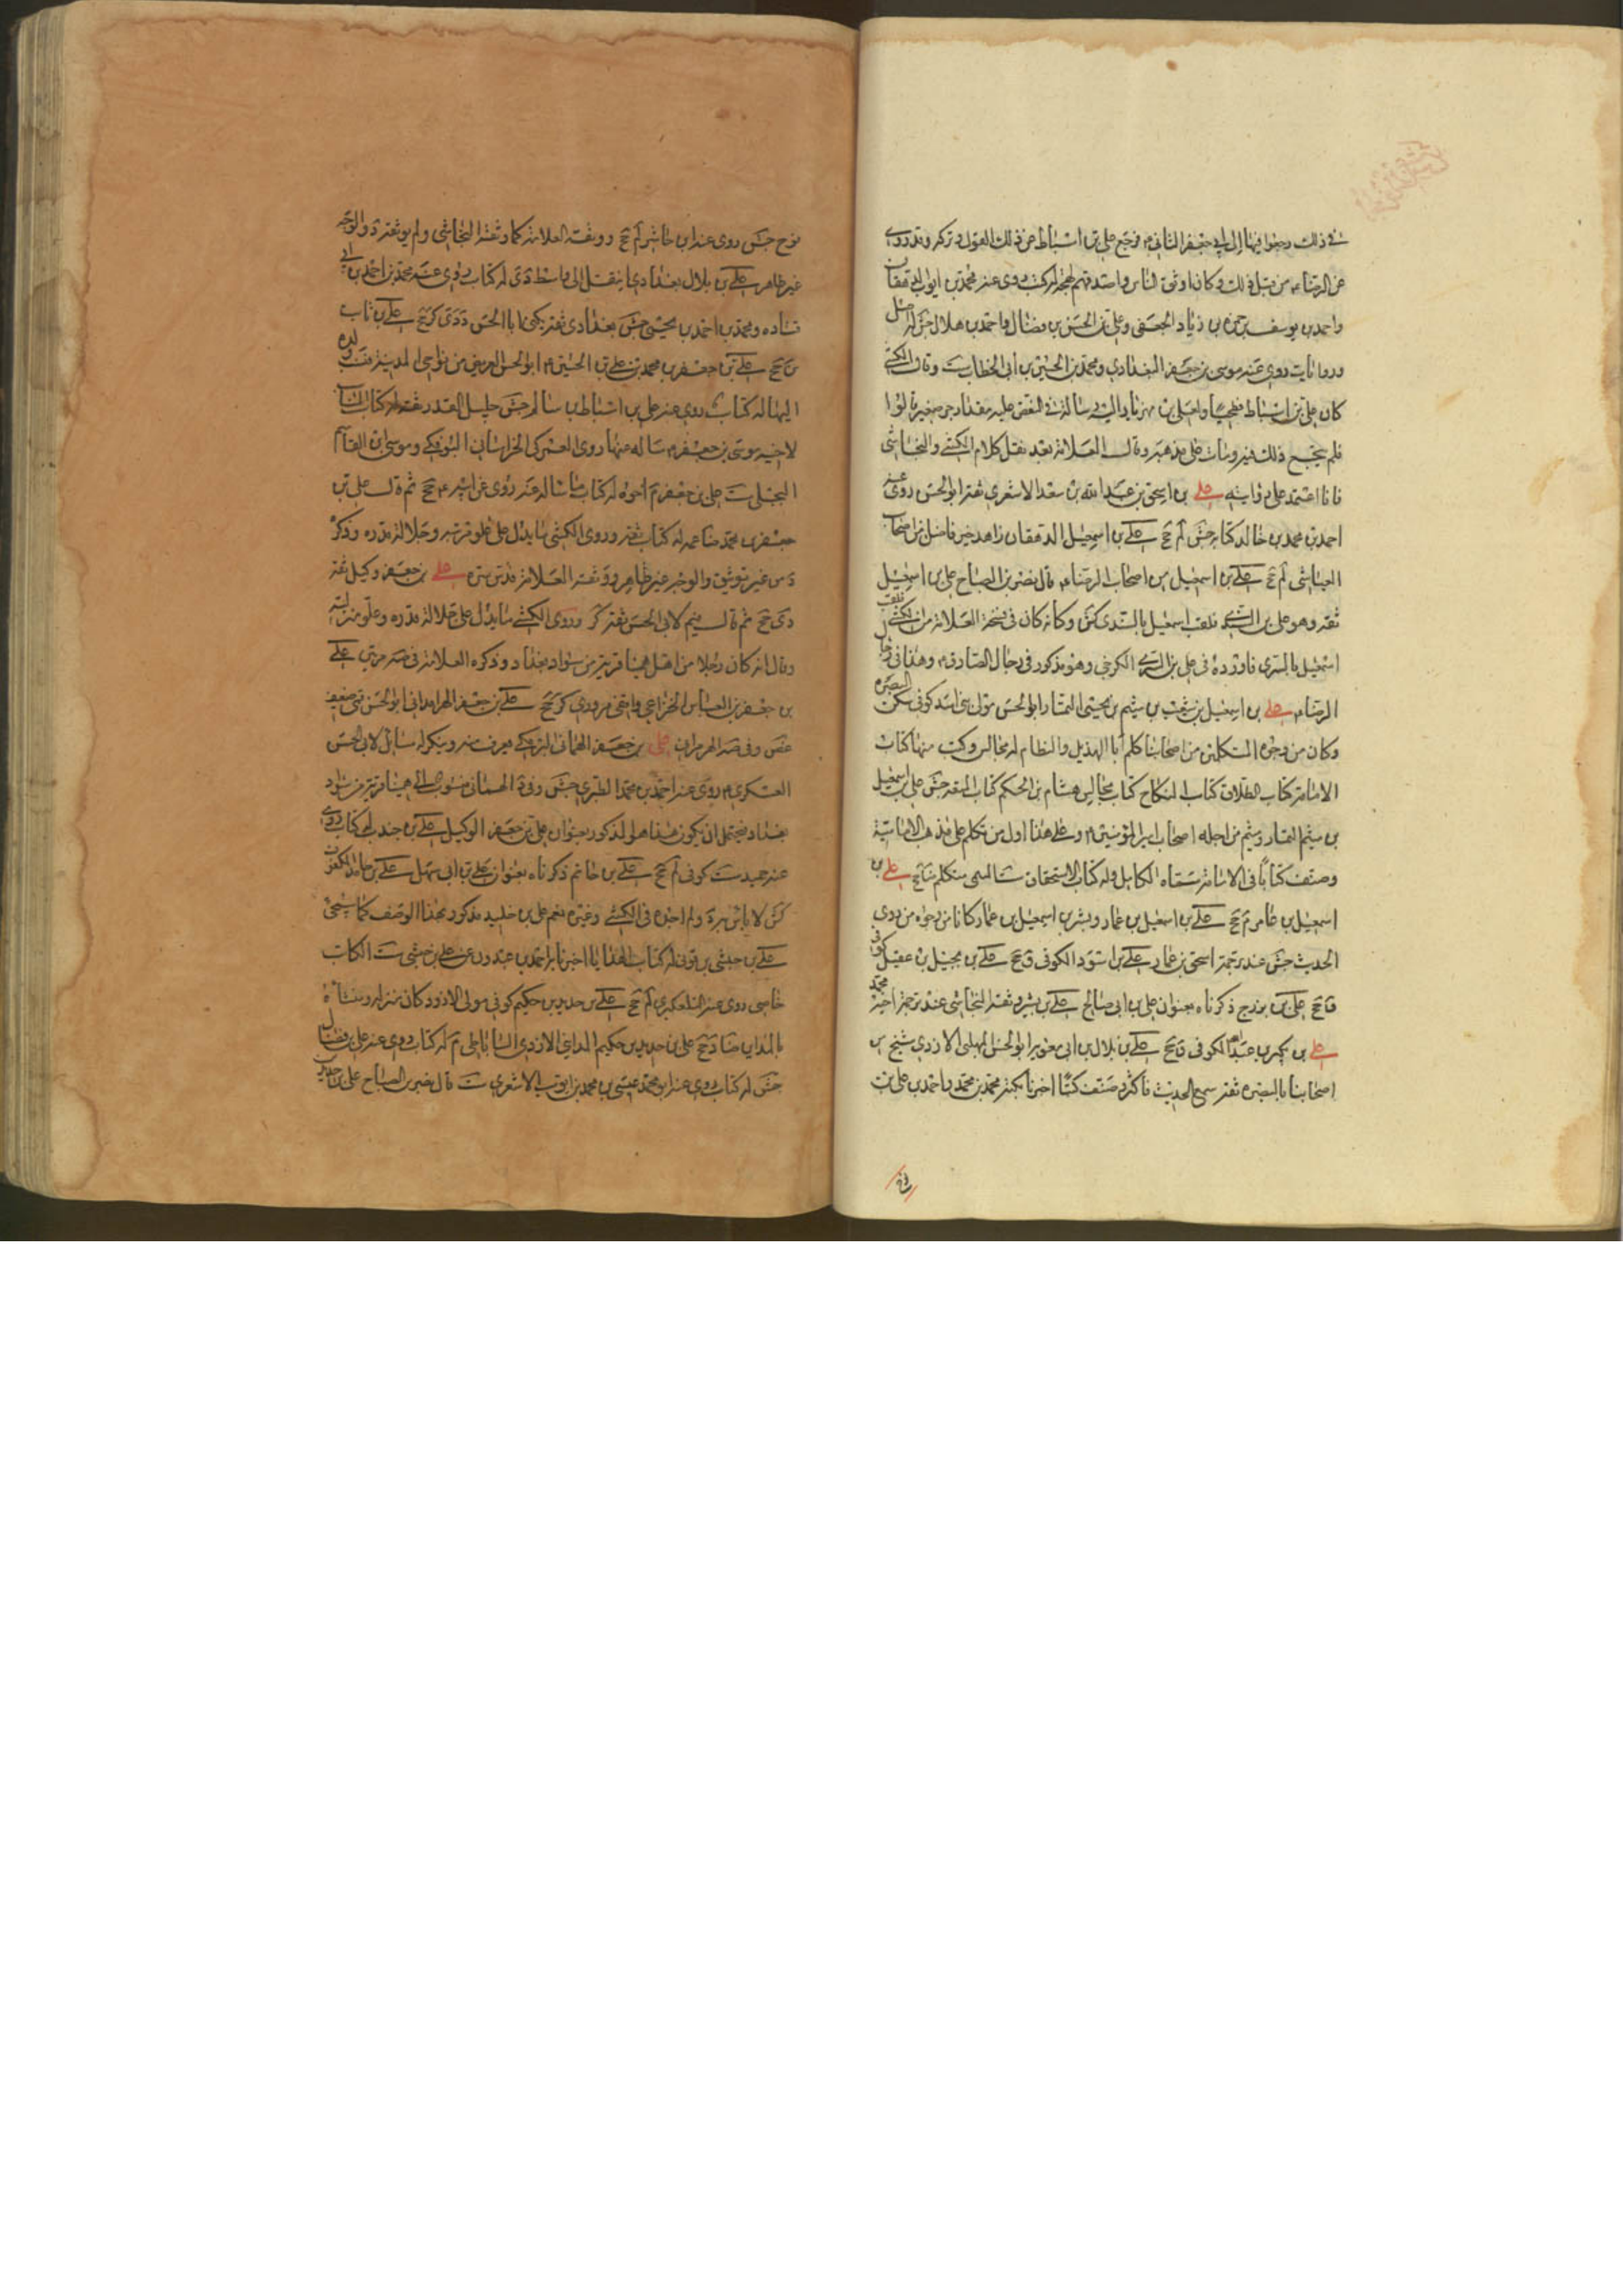 في ذلك رجعوا فيها إلى أبي جعفر الثاني م فرجع علي بن أسباط عن ذلك القول وتركه وقد روى
عن الرضا م من قبل ذلك وكان أوثق الناس وأصدقهم لهجة له كتب روى عنه محمد بن أيوب الدهقان
وأحمد بن يوسف بن حمزة بن زياد الجعفي وعلي بن الحسن بن فضال وأحمد بن هلال جش له أصل
وروايات روى عنه موسى بن جعفر البغدادي ومحمد بن الحسين بن أبي الخطاب ست وقال الكشي
كان علي بن أسباط فطحيا ولعلي بن مهزيار إليه رسالة في النقض عليه مقدار جزء صغير قالوا
فلم ينجع ذلك فيه ومات على مذهبه وقال العلامة بعد نقل كلام الكشي والنجاشي
فأنا أعتمد على روايته علي بن إسحق بن عبد الله بن سعد الأشعري ثقة أبو الحسن روى عنه
أحمد بن محمد بن خالد كتابه جش لم جخ علي بن إسمعيل الدهقان زاهد خير فاضل من أصحاب
العياشي لم جخ علي بن إسمعيل من أصحاب الرضا م قال نصر بن الصباح علي بن إسمعيل
ثقة وهو علي بن السدي فلقب إسمعيل بالسدي كش وكأنه كان في نسخة العلامة من الكشي فلقب
إسمعيل بالسري فأورده في علي بن السري الكرخي وهو مذكور في رجال الصادق م وهذا في رجال
الرضا م علي بن إسمعيل بن شعيب بن ميثم بن يحيى التمار أبو الحسن مولى بني أسد كوفي سكن البصرة
وكان من وجوه المتكلمين من أصحابنا كلم أبا الهذيل والنظام له مجالس وكتب منها كتاب
الإمامة كتاب الطلاق كتاب النكاح كتاب مجالس هشام بن الحكم كتاب المتعة جش علي بن إسمعيل
بن ميثم التمار وميثم من أجلة أصحاب أمير المؤمنين م وعلي هذا أول من تكلم على مذهب الإمامية
وصنف كتابا في الإمامة سماه الكامل وله كتاب الاستحقاق ست الميثمي متكلم ضا جخ علي بن
إسمعيل بن عامر م جخ علي بن إسمعيل بن عمار وبشر بن إسمعيل بن عمار كانا من وجوه من روى
الحديث جش عند ترجمة إسحق بن عمار علي بن أسود الكوفي ق جخ علي بن بجيل بن عقيل كوفي
ق جخ علي بن بزرج ذكرناه بعنوان علي بن أبي صالح علي بن بشير وثقه النجاشي عند ترجمة أخيه محمد
علي بن بكير بن عبد الله الكوفي ق جخ علي بن بلال بن أبي معوية أبو الحسن المهلبي الأزدي شيخ من
أصحابنا بالبصرة ثقة سمع الحديث فأكثر وصنف كتبا أخبرنا بكتبه محمد بن محمد وأحمد بن علي بن
نوح جش روى عنه ابن حاشر لم جخ ووثقه العلامة كما وثقه النجاشي ولم يوثقه د والوجه
غير ظاهر علي بن بلال بغدادي انتقل إلى واسط دي له كتاب روى عنه محمد بن أحمد بن أبي
قتادة ومحمد بن أحمد بن يحيى جش بغدادي ثقة يكنى أبا الحسن د دي كر جخ علي بن ثابت
ين جخ علي بن جعفر بن محمد بن علي بن الحسين م أبو الحسن العريضي من نواحي المدينة فنسب ولده
إليها له كتاب روى عنه علي بن أسباط بن سالم جش جليل القدر ثقة له كتاب المناسك
لأخيه موسى بن جعفر م سأله عنها روى العمركي الخراساني البوفكي وموسى بن القاسم
البجلي ست علي بن جعفر م أخوه له كتاب ما سأله عنه روى عن أبيه م جخ ثم قال علي بن
جعفر بن محمد ضا عمه له كتاب ثقة وروى الكشي ما يدل على علو مرتبته وجلالة قدره وذكره
د من غير توثيق والوجه غير ظاهر ووثقه العلامة قدس سره علي بن جعفر وكيل ثقة
دي جخ ثم قال قيم لأبي الحسن ثقة كر وروى الكشي ما يدل على جلالة قدره وعلو منزلته
وقال إنه كان رجلا من أهل همينا قرية من سواد بغداد وذكره العلامة في صه مرتين علي
بن جعفر بن العباس الخزاعي واقفي مروزي كر جخ علي بن جعفر الهرمزاني أبو الحسن قمي ضعيف
غض وفي صه الهرمزان علي بن جعفر الهماني البرمكي يعرف منه وينكر له مسائل لأبي الحسن
العسكري م روى عنه أحمد بن محمد الطبري جش وفي د الهماني منسوب إلى همينا قرية من سواد
بغداد فيحتمل أن يكون هذا هو المذكور بعنوان علي بن جعفر الوكيل علي بن جندب له كتاب روى
عنه حميد ست كوفي لم جخ علي بن حاتم ذكرناه بعنوان علي بن أبي سهل علي بن حامد المكفوف
كش لا بأس به د ولم أجده في الكشي وغيره نعم علي بن خليد مذكور بهذا الوصف كما سيجيء
علي بن حبشي بن قوني له كتاب الهدايا أخبرنا به أحمد بن عبدون عن علي بن حبشي ست الكاتب
خاصي روى عنه التلعكبري لم جخ علي بن حديد بن حكيم كوفي مولى الأزد وكان منزله ومنشأه
بالمداين ضا د جخ علي بن حديد بن حكيم المدايني الأزدي الساباطي م له كتاب روى عنه علي بن فضال
جش له كتاب روى عنه أبو محمد عيسى بن محمد بن أيوب الأشعري ست قال نصر بن الصباح علي بن حديد